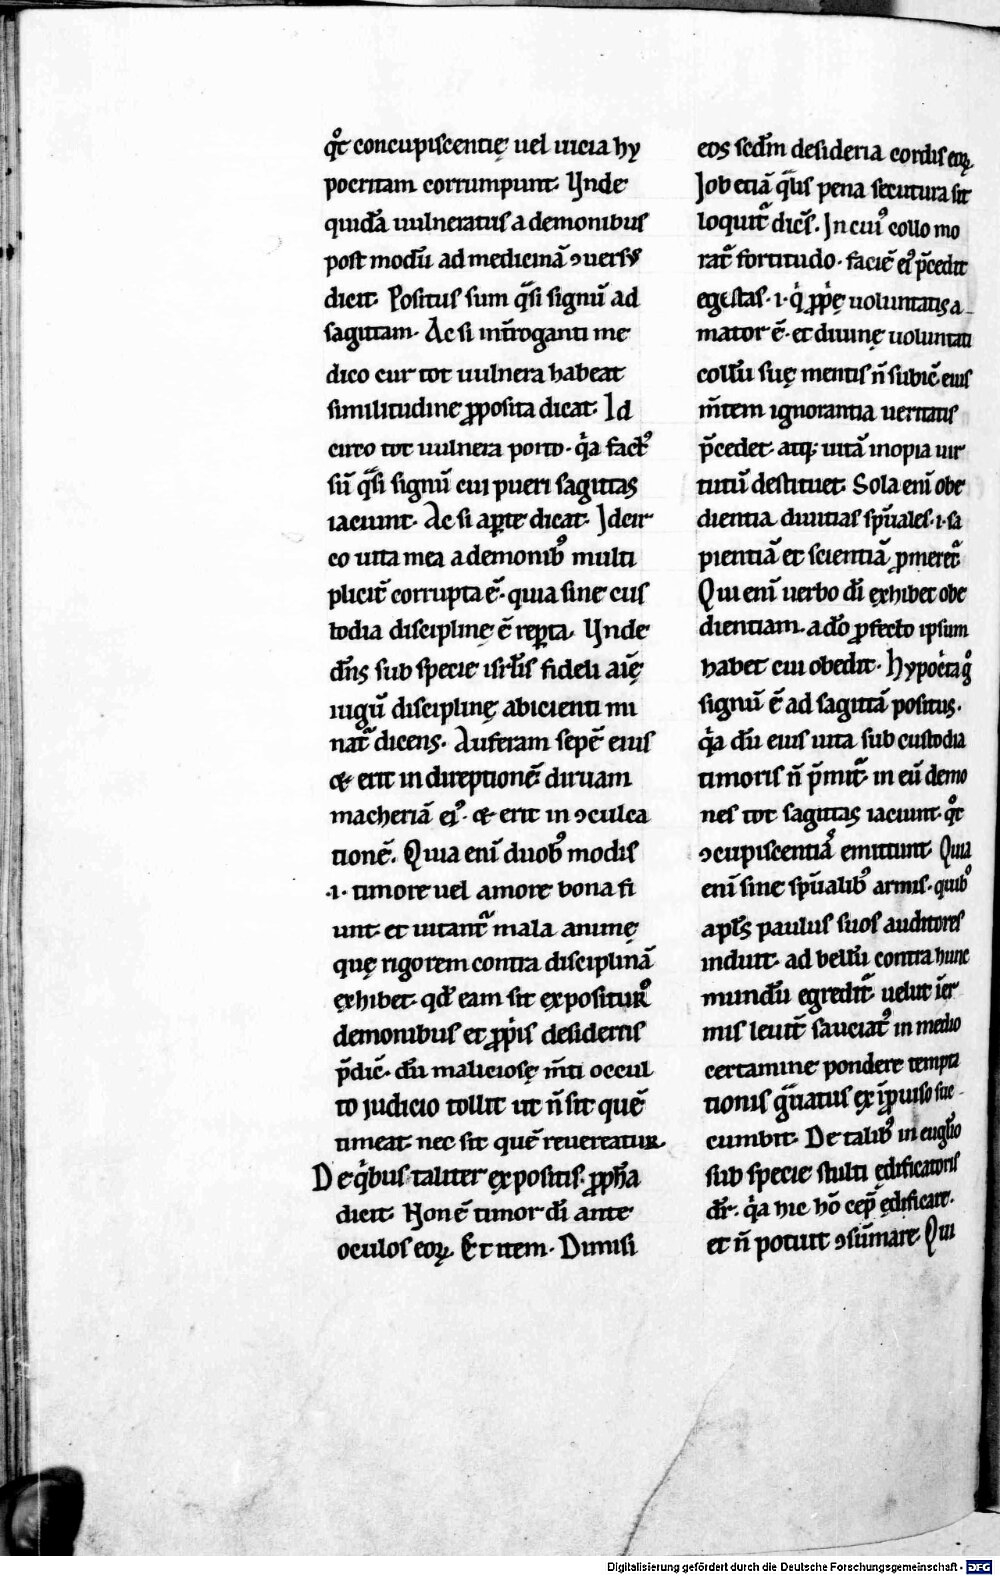 qͦt concupiscentię uel uicia hy
pocritam corrumpunt. Unde
quidā uulneratus a demonibus
post modū ad medicinā ꝯuersus
dicit. Positus sum q̄si signū ad
sagittam. Ac si int̄roganti me
dico cur tot uulnera habeat
similitudine ꝓposita dicat. Id
circo tot uulnera porto. qͥa fact᷒
sū q̄si signū cui pueri sagittas
iaciunt. Ac si aꝑte dicat. Idcir
co uita mea a demonib᷒ multi
plicit̄ corrupta ē. quia sine cus
todia disciplinę ē reꝑta. Unde
dn̄s sub specie isrl̄is fideli aīę
iugū disciplinę abicienti mi
nat᷑ dicens. Auferam sepē eius
& erit in direptionē diruam
macheriā ei᷒. & erit in ꝯculca
tionē. Quia enī duob᷒ modis
.i. timore uel amore bona fi
unt. et uitant᷑ mala animę
quę rigorem contra disciplinā
exhibet. qd̄ eam sit expositur᷒
demonibus et ꝓpͥis desideriis
p̄dic̄. dū maliciosę m̄ti occul
to iudicio tollit ut n̄ sit quē
timeat. nec sit quē reuereatur.
De qͥbus taliter expositis. ꝓph̄a
dicit. Non ē timor dī ante
oculos eoꝝ. Et item. Dimisi
eos scd̄m desideria cordis eoꝝ.
Iob etiā qͣlis pena secutura sit
loquit᷑ dic̄s. In cui᷒ collo mo
rat᷑ fortitudo. faciē ei᷒ p̄cedit
egestas. .i. qͥ ꝓpͥę uoluntatis a
mator ē. et diuinę uoluntati
collū suę mentis n̄ subic̄. eius
m̄tem ignorantia ueritatis
p̄cedet. atq; uitā inopia uir
tutū destituet. Sola enī obe
dientia diuitias spūales .i. sa
pientiā et scientiā ꝓmeret᷑.
Qui enī uerbo dī exhibet obe
dientiam. a dō ꝓfecto ipsum
habet cui obedit. Hypoc̄ta gͦ
signū ē ad sagittā positus.
qͥa dū eius uita sub custodia
timoris n̄ p̄mit᷑. in eū demo
nes tot sagittas iaciunt. qͦt
ꝯcupiscentiā emittunt. Quia
enī sine spūalib᷒ armis. quib᷒
apl̄s paulus suos auditores
induit. ad bellū contra hunc
mundū egredit᷑. uelut īer
mis leuit̄ sauciat᷒ in medio
certamine pondere tempta
tionis gͣuatus ex īprouiso suc
cumbit. De talib᷒ in euglͥo
sub specie stulti ędificatoris
dr̄. qͥa hic hō cep̄ ędificare.
et n̄ potuit ꝯsūmare. Qui